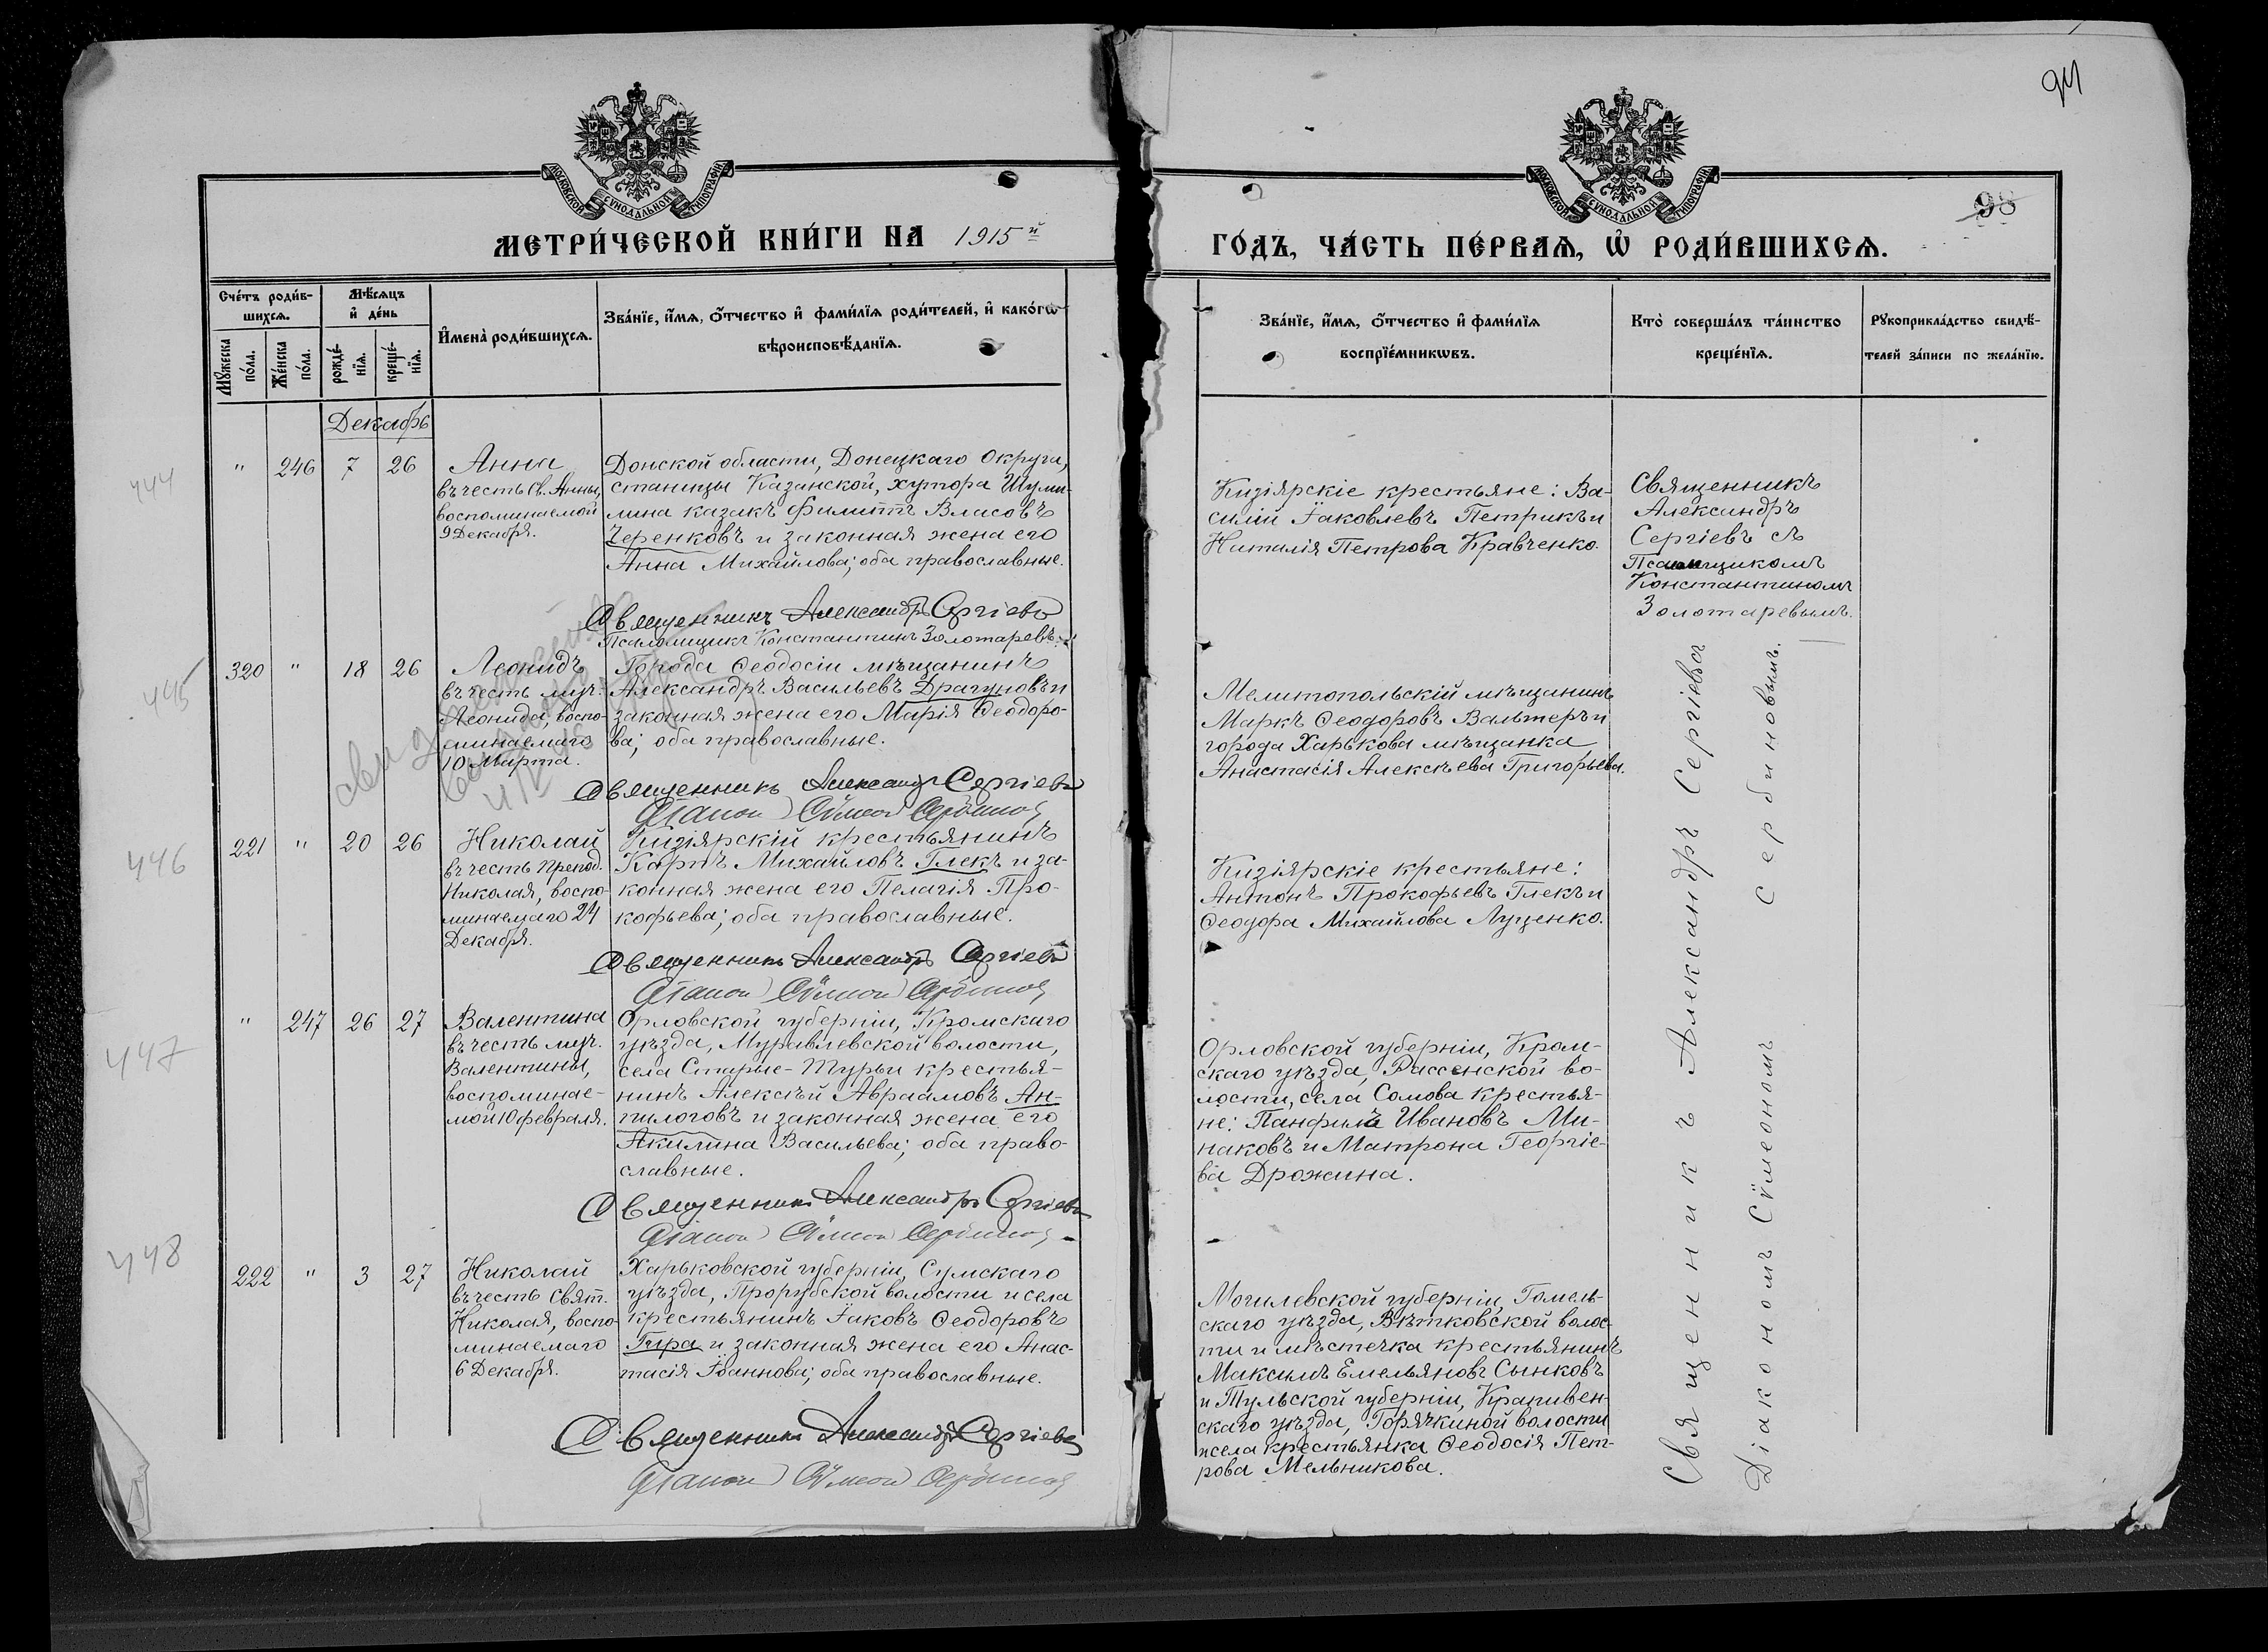 94
98
МОСКОВСКОЙ СѴНОДАЛЬНОЙ ТИПОГРАФІИ
МОСКОВСКОЙ СѴНОДАЛЬНОЙ ТИПОГРАФІИ
МЕТРИ́ЧЕСКОЙ КНИ́ГИ НА 1915й
ГО́ДЪ, ЧА́СТЬ ПЕ́РВАЯ, Ѡ РОДИ́ВШИХСЯ.
Сче́тъ роди́в-
шихся.
Мѣ́сяцъ
и де́нь
Му́жеска
по́ла.
Же́нска
по́ла.
рожде́-
нія.
креще́-
нія.
Имена̀ роди́вшихся.
Зва́нїе, и́мя, о́тчество и фами́лїя роди́телей, и како́гѡ
вѣроисповѣ́данїя.
Зва́нїе, и́мя, о́тчество и фами́лїя
воспрїе́мникѡвъ.
Кто̀ соверша́лъ та́инство
креще́нїя.
Рукоприкла́дство свидѣ́-
телей за́писи по жела́нїю.
Декабрь
444
" 246 7 26
Анна
въ честь Св. Анны,
воспоминаемой
9 Декабря.
Донской области, Донецкаго Округа,
станицы Казанской, хутора Шуми-
лина казакъ Филиппъ Власовъ
Черенковъ и законная жена его
Анна Михайлова; оба православные.
Священникъ Александръ Сергіевъ
Псаломщикъ Константинъ Золотаревъ.
Кизіярскіе крестьяне: Ва-
силій Іаковлевъ Петрикъ и
Наталія Петрова Кравченко.
Священникъ
Александръ
Сергіевъ съ
Псаломщикомъ
Константиномъ
Золотаревымъ.
445
320 " 18 26
Леонидъ
въ честь муч.
Леонида, воспо-
минаемаго
10 Марта.
Города Ѳеодосіи мѣщанинъ
Александръ Васильевъ Драгуновъ и
законная жена его Марія Ѳеодоро-
ва; оба православные.
Священникъ Александръ Сергіевъ
Діаконъ Сѵмеонъ Сербиновъ
Мелитопольскій мѣщанинъ
Маркъ Ѳеодоровъ Вальтеръ и
города Харькова мѣщанка
Анастасія Алексѣева Григорьева.
446
221 " 20 26
Николай
въ честь Препод.
Николая, воспо-
минаемаго 24
Декабря.
Кизіярскій крестьянинъ
Карпъ Михайловъ Глекъ и за-
конная жена его Пелагія Про-
кофьева; оба православные.
Священникъ Александръ Сергіевъ
Діаконъ Сѵмеонъ Сербиновъ
Кизіярскіе крестьяне:
Антонъ Прокофьевъ Глекъ и
Ѳеодора Михайлова Луценко.
447
" 247 26 27
Валентина
въ честь муч.
Валентины,
воспоминае-
мой 10 февраля.
Орловской губерніи, Кромскаго
уѣзда, Муравлевской волости,
села Старые-Турьи крестья-
нинъ Алексѣй Авраамовъ Ан-
пилоговъ и законная жена его
Акилина Васильева; оба право-
славные.
Священникъ Александръ Сергіевъ
Діаконъ Сѵмеонъ Сербиновъ
Орловской губерніи, Кром-
скаго уѣзда, Рассенской во-
лости, села Сомова крестья-
не: Панфилъ Ивановъ Ми-
наковъ и Матрона Георгіе-
ва Дрожина.
448
222 " 3 27
Николай
въ честь Свят.
Николая, воспо-
минаемаго
6 Декабря.
Харьковской губерніи, Сумскаго
уѣзда, Прорубской волости и села
крестьянинъ Іаковъ Ѳеодоровъ
Гира и законная жена его Анас-
тасія Іоаннова; оба православные.
Священникъ Александръ Сергіевъ
Діаконъ Сѵмеонъ Сербиновъ
Могилевской губерніи, Гомель-
скаго уѣзда, Вѣтковской волос-
ти и мѣстечка крестьянинъ
Максимъ Емельяновъ Сынковъ
и Тульской губерніи, Крапивен-
скаго уѣзда, Горячкиной волости
и села крестьянка Ѳеодосія Пет-
рова Мельникова.
Священникъ Александръ Сергіевъ
Діакономъ Сѵмеономъ Сербиновымъ.